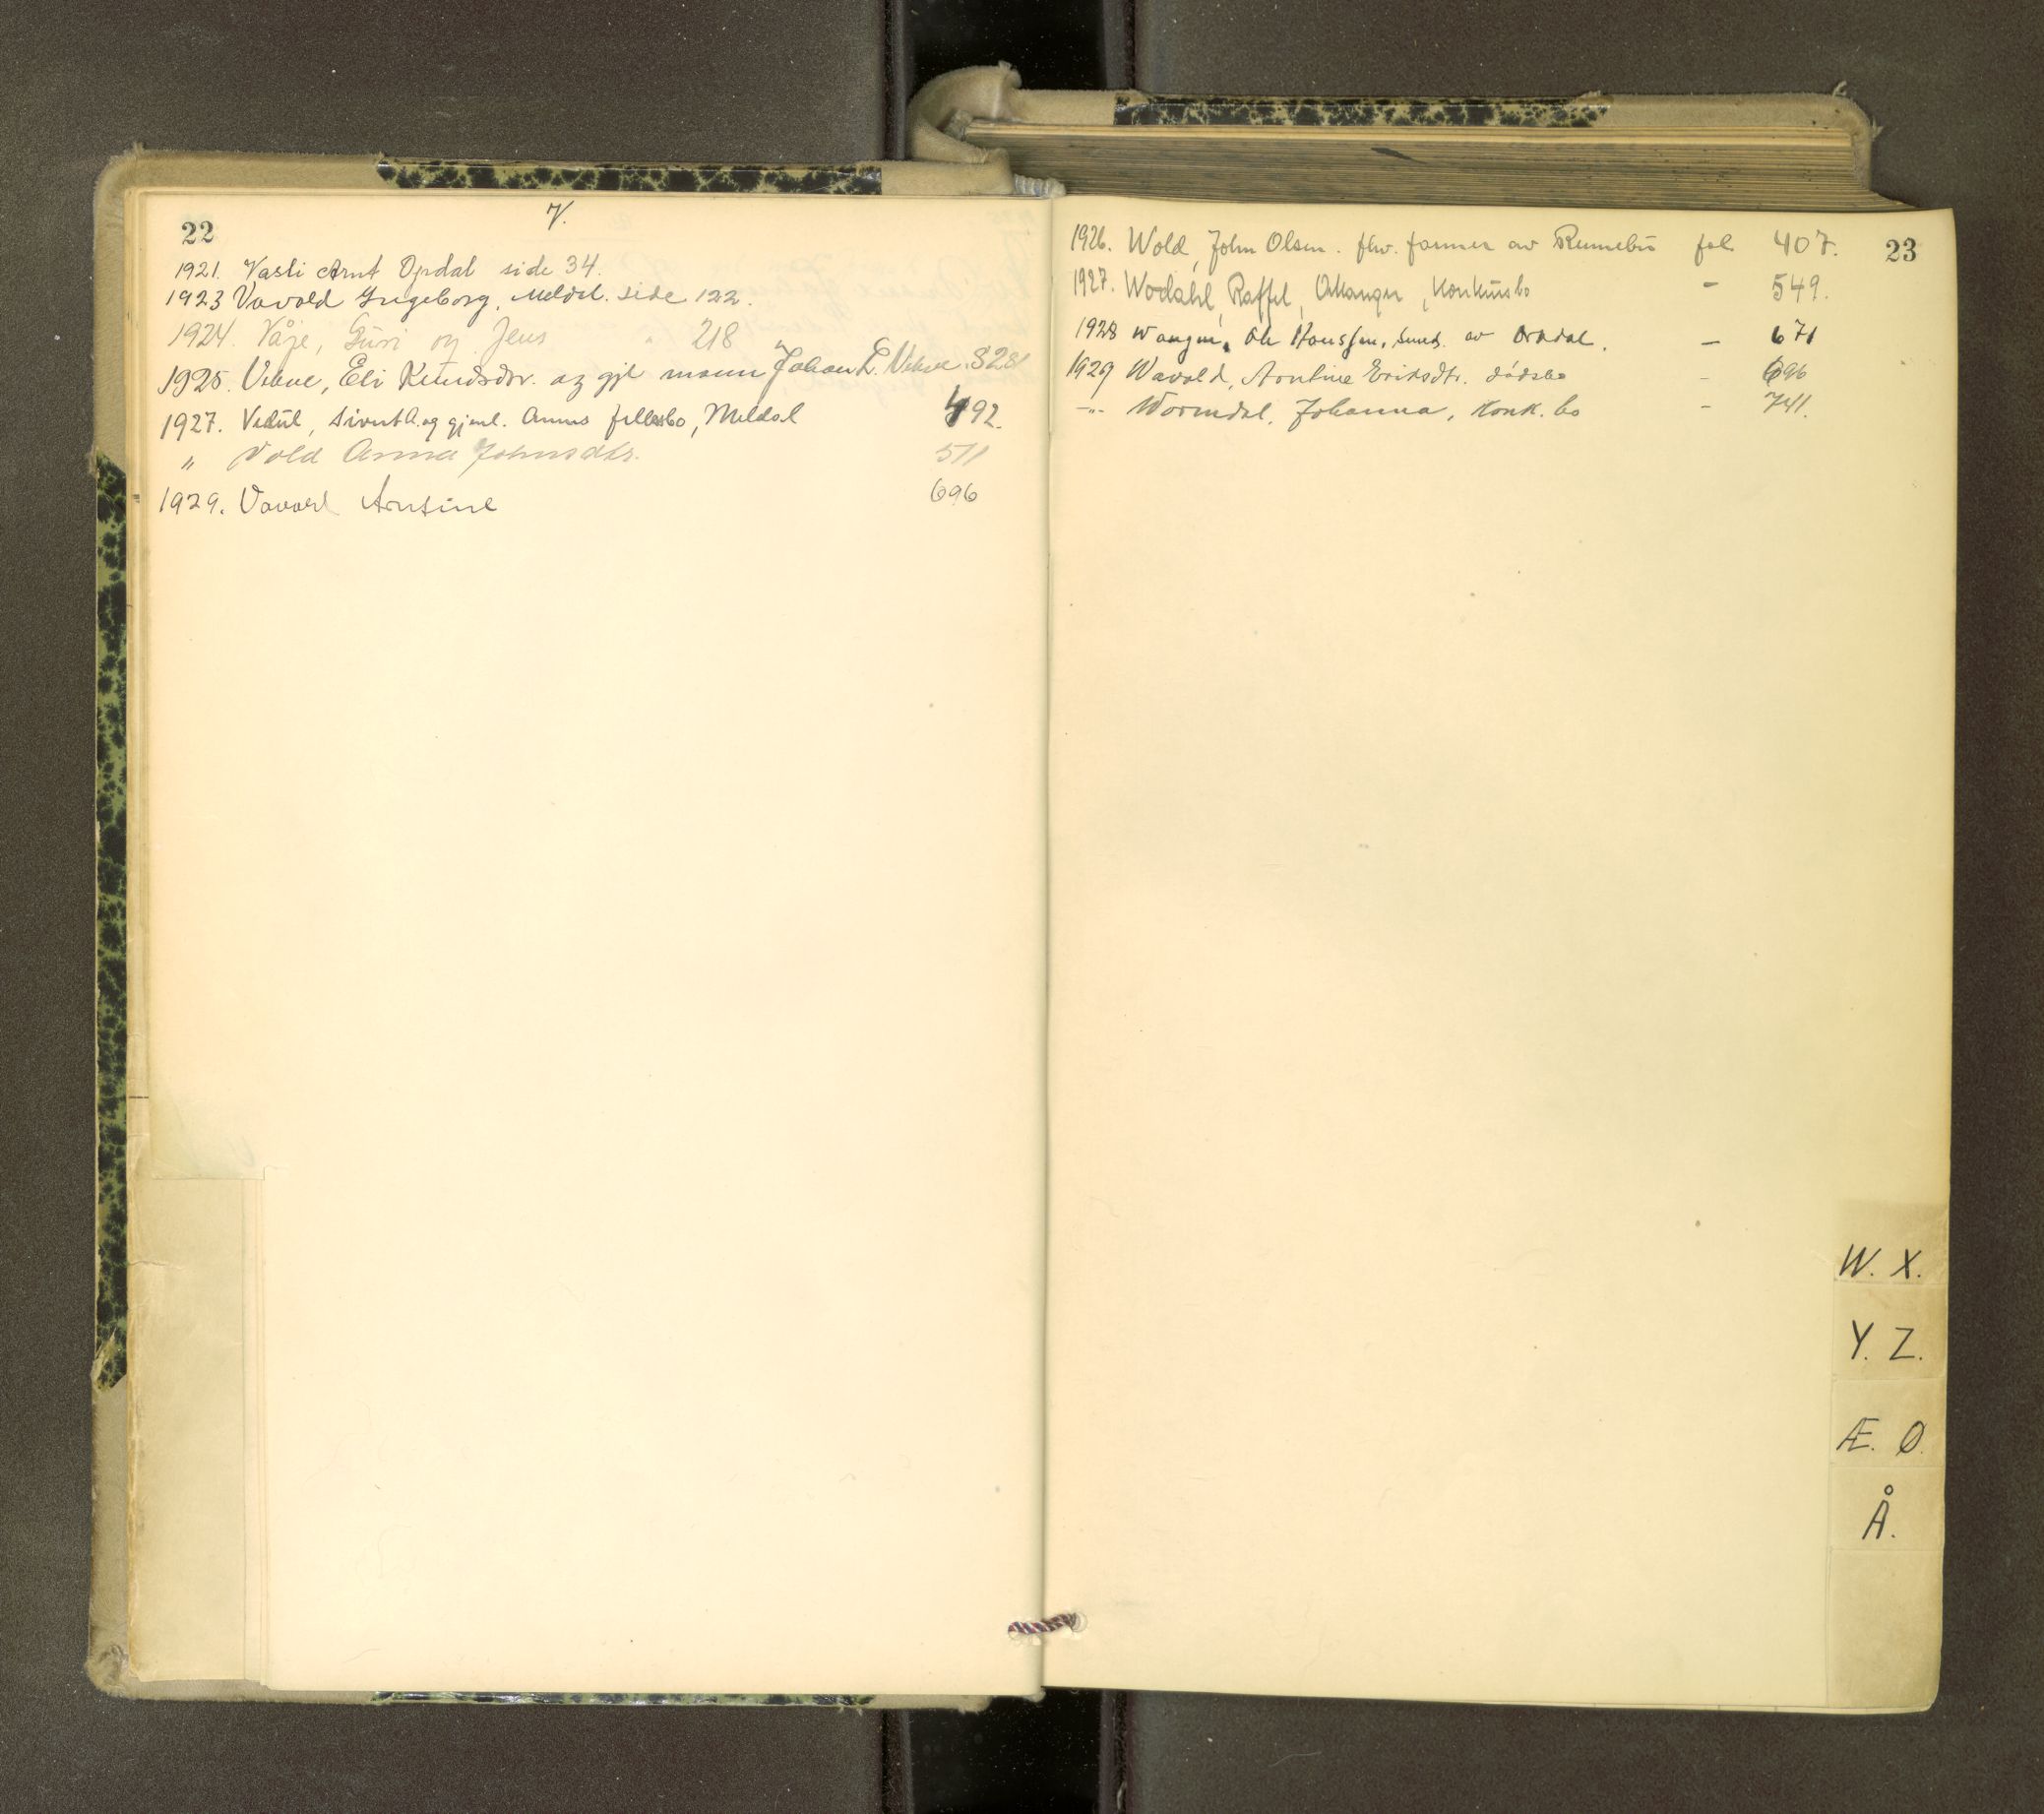 22
V.
1921. Vasli Arnt Opdal side 34.
1923 Vavold Ingeborg, Meldal. side 122.
1924. Våje, Guri og Jens " 218
1925. Vehve, Eli Knudsdtr. og gjl mann Johan E. Vehve. 328
1927. Vedul, Sivert A. og gjenl. Annes fellesbo, Meldal 492.
" Vold Anna Johnsdtr. 511
1929. Vavold Arntine 696
23
1926. Wold, John Olsen. fhv. farmer av Rennebu fol 407.
1927. Wodahl, Raffel, Orkanger, Konkursbo - 549.
1928 Wangen, Ole Hanssen, smed. av Orkdal. - 671
1929 Wavold, Arntine Eriksdtr. dødsbo - 696
-"- Wormdal, Johanna, Konk. bo - 741.
W. X.
Y. Z.
Æ. Ø.
Å.